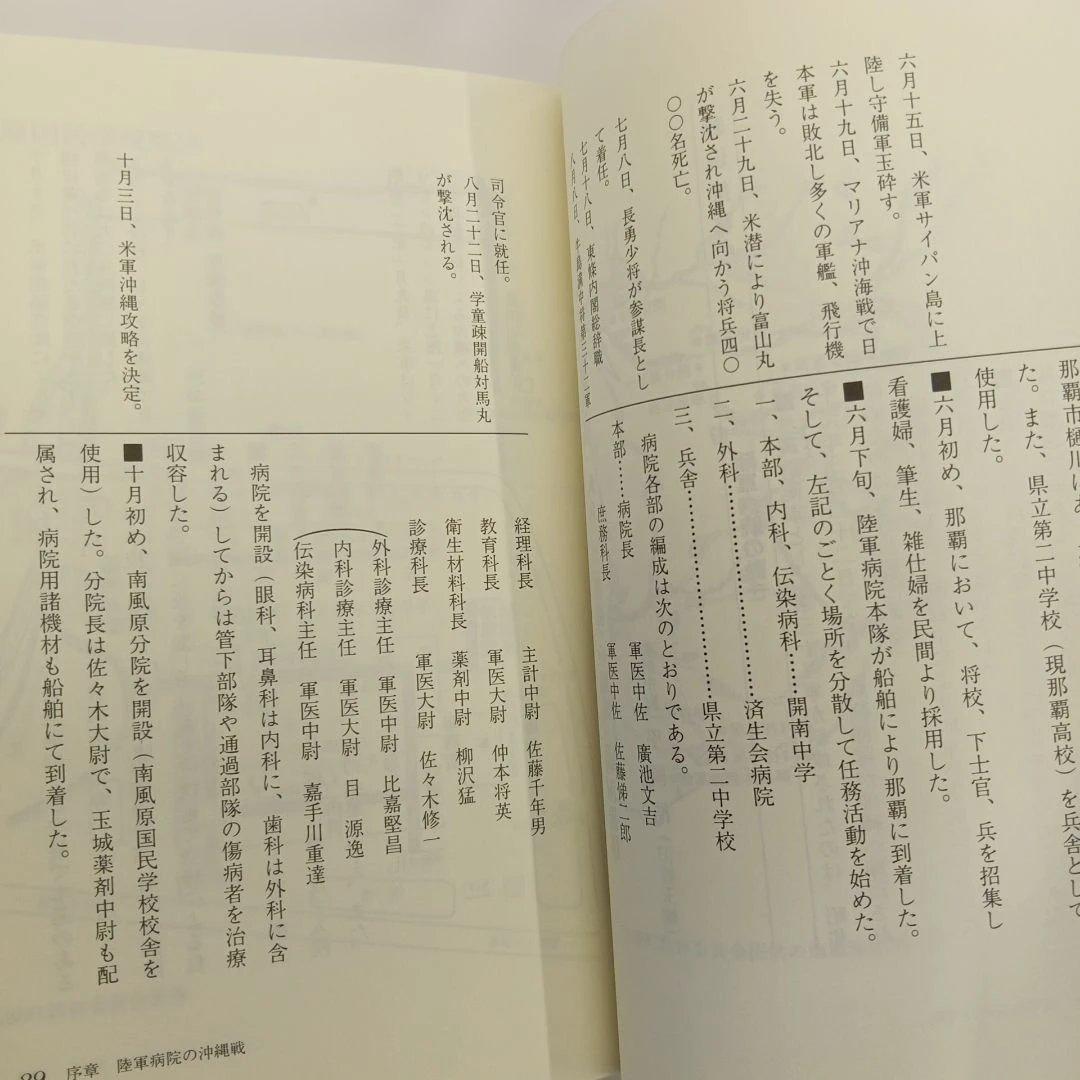 六月十五日、米軍サイパン島に上
陸し守備軍玉砕す。
六月十九日、マリアナ沖海戦で日
本軍は敗北し多くの軍艦、飛行機
を失う。
六月二十九日、米潜により富山丸
が撃沈され沖縄へ向かう将兵四〇
〇〇名死亡。
七月八日、長勇少将が参謀長とし
て着任。
七月十八日、東條内閣総辞職
八月八日、牛島満中将第三十二軍
那覇市樋川にあ
た。また、県立第二中学校（現那覇高校）を兵舎として
使用した。
■六月初め、那覇において、将校、下士官、兵を招集し
看護婦、筆生、雑仕婦を民間より採用した。
■六月下旬、陸軍病院本隊が船舶により那覇に到着した。
そして、左記のごとく場所を分散して任務活動を始めた。
一、本部、内科、伝染病科……開南中学
二、外科……………………済生会病院
三、兵舎……………………県立第二中学校
病院各部の編成は次のとおりである。
本部……病院長　軍医中佐　廣池文吉
庶務科長　軍医中佐　佐藤悌二郎
司令官に就任。
八月二十二日、学童疎開船対馬丸
が撃沈される。
十月三日、米軍沖縄攻略を決定。
経理科長　主計中尉　佐藤千年男
教育科長　軍医大尉　仲本将英
衛生材料科長　薬剤中尉　柳沢猛
診療科長　軍医大尉　佐々木修一
外科診療主任　軍医中尉　比嘉堅昌
内科診療主任　軍医大尉　目　源逸
伝染病科主任　軍医中尉　嘉手川重達
病院を開設（眼科、耳鼻科は内科に、歯科は外科に含
まれる）してからは管下部隊や通過部隊の傷病者を治療
収容した。
■十月初め、南風原分院を開設（南風原国民学校校舎を
使用）した。分院長は佐々木大尉で、玉城薬剤中尉も配
属され、病院用諸機材も船舶にて到着した。
序章　陸軍病院の沖縄戦